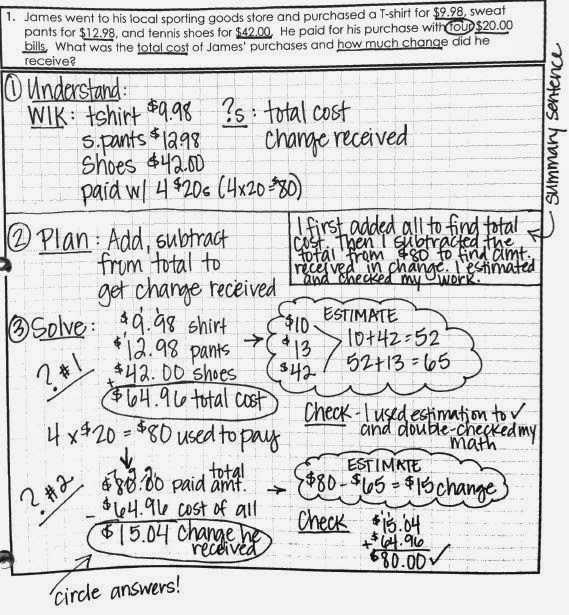 1. James went to his local sporting goods store and purchased a T-shirt for $9.98, sweat
pants for $12.98, and tennis shoes for $42.00. He paid for his purchase with four $20.00
bills. What was the total cost of James' purchases and how much change did he
receive?
① Understand:
WIK: tshirt $9.98
s.pants $12.98
Shoes $42.00
paid w/ 4 $20s (4x20=$80)
?s: total cost
change received
summary sentence
② Plan: Add, subtract
from total to
get change received
I first added all to find total
cost. Then I subtracted the
total from $80 to find amt.
received in change. I estimated
and checked my work.
③ Solve:
?#1
$9.98 shirt
$12.98 pants
+$42.00 shoes
$64.96 total cost
ESTIMATE
$10
$13
$42
10+42=52
52+13=65
Check - I used estimation to ✓
and double-checked my
math
4 x $20 = $80 used to pay
?#2
$80.00 paid total amt.
- $64.96 cost of all
$15.04 change he
received
ESTIMATE
$80 - $65 = $15 change
Check
$15.04
+$64.96
$80.00 ✓
circle answers!